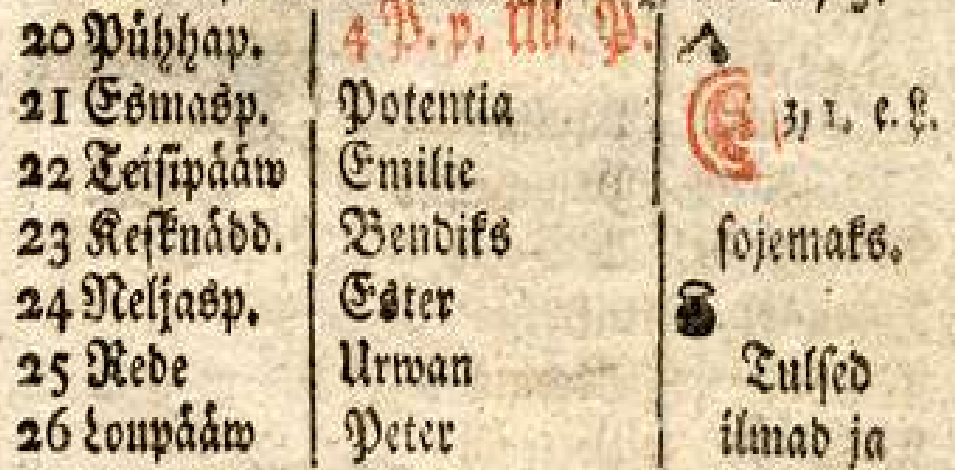 20 Pühhap. 4 P. p. Üll. P.
21 Esmasp. Potentia 3, 1. e. L.
22 Teisipääw Emilie
23 Kesknädd. Bendiks sojemaks.
24 Neljasp. Ester
25 Rede Urwan Tulsed
26 Loupääw Peter ilmad ja